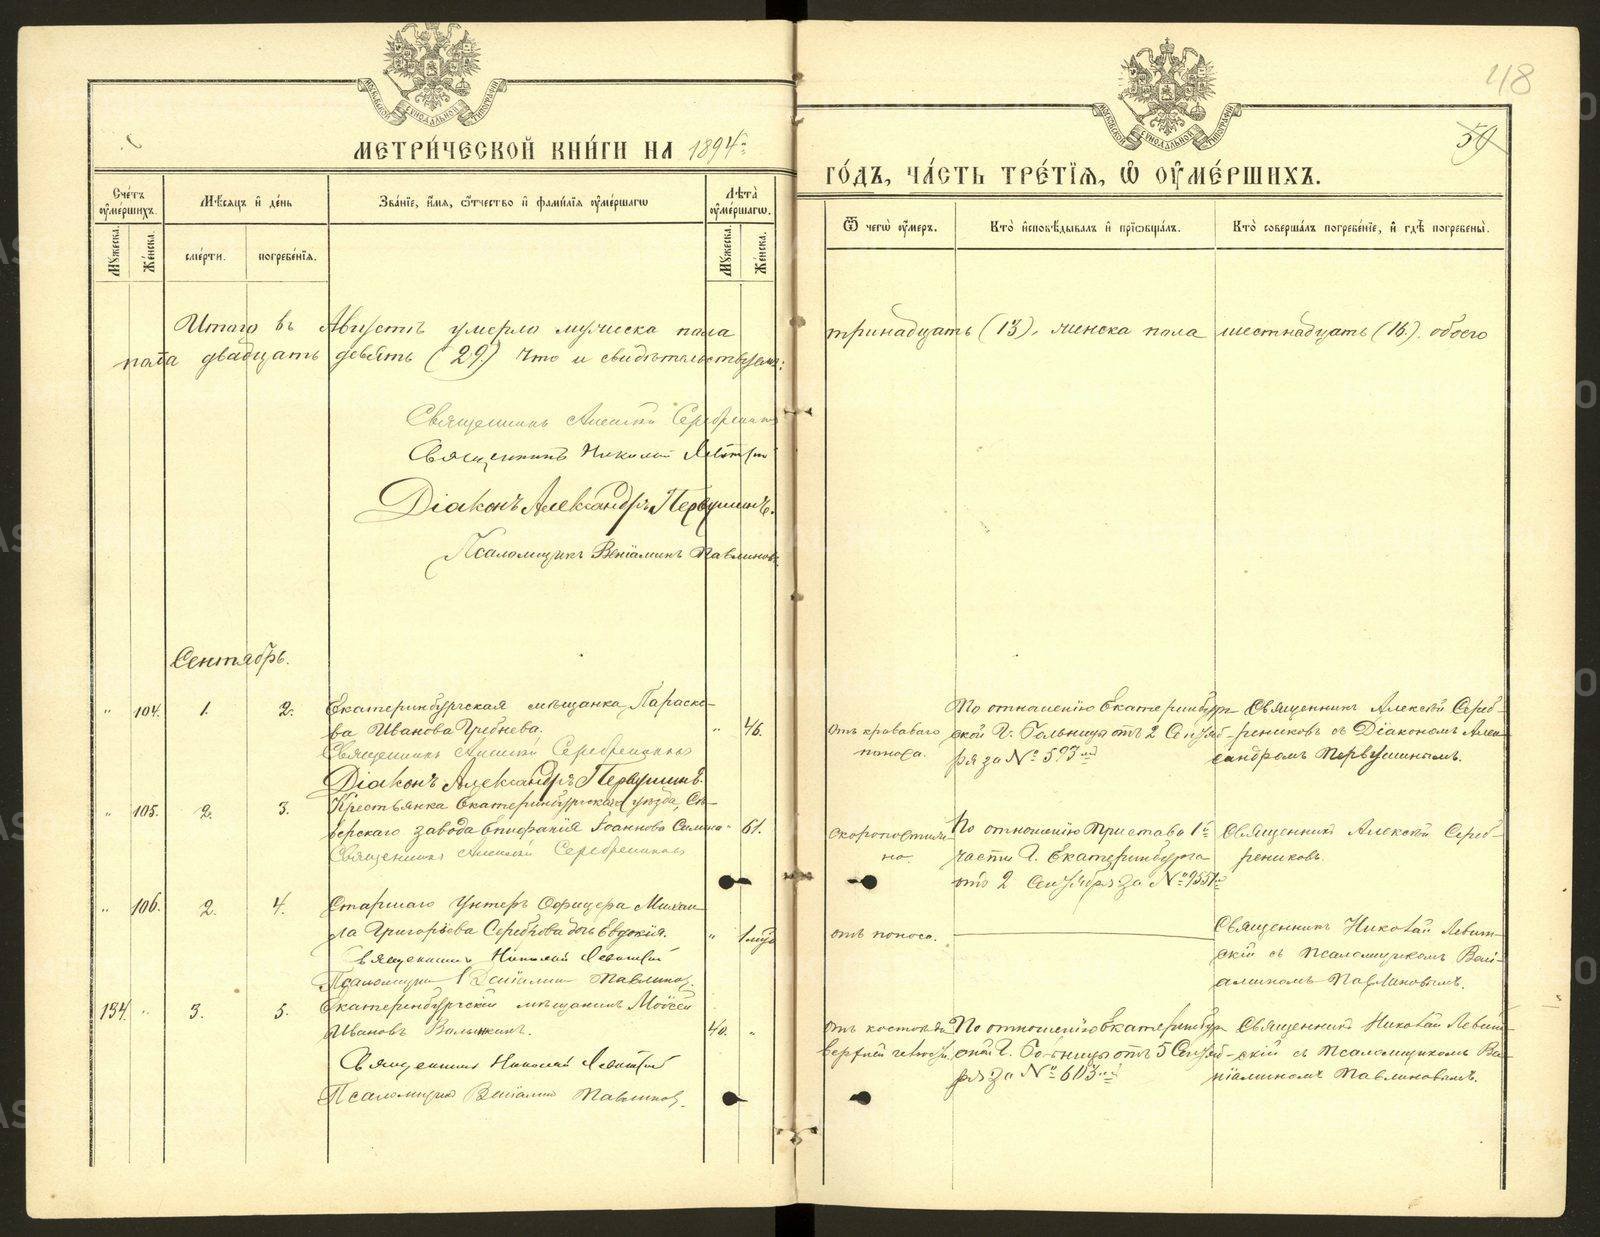 48
59
МЕТРИ́ЧЕСКОЙ КНИ́ГИ НА 1894й
ГО́ДЪ, ЧА́СТЬ ТРЕ́ТЇѦ, Ѡ ОУМЕ́РШИХЪ.
Сче́тъ оумє́ршихъ.
Мѣ́сѧцъ и҆ де́нь
Зва́нїе, и҆́мѧ, ѻ҆́тчество и҆ фамилїѧ оумє́ршагѡ
Лѣта̀ оумє́ршагѡ.
Ѿ чегѡ̀ оу҆́меръ.
Кто̀ и҆сповѣ́дывалъ и҆ прїѡбща́лъ.
Кто̀ соверша́лъ погребе́нїе, и҆ гдѣ̀ погребены̀.
Му́жеска.
Же́нска.
сме́рти.
погребе́нїѧ.
Му́жеска.
Же́нска.
Итого въ Августѣ умерло мужеска пола тринадцать (13), женска пола шестнадцать (16). обоего
пола двадцать девять (29) что и свидѣтельствуемъ:
Священникъ Алексѣй Серебренниковъ
Священникъ Николай Левитскій
Дiаконъ Александръ Первушинъ.
Псаломщикъ Венiаминъ Павлиновъ
Сентябрь.
" 104. 1. 2. Екатеринбургская мѣщанка Параске-
ва Иванова Гребнева. " 46.
Священникъ Алексѣй Серебренниковъ
Дiаконъ Александръ Первушинъ.
отъ кроваваго
поноса.
По отношенiю Екатеринбург-
ской Г. Больницы отъ 2 Сентяб-
ря за № 593
Священникъ Алексѣй Сереб-
рениковъ съ Дiакономъ Алек-
сандромъ Первушинымъ.
" 105. 2. 3. Крестьянка Екатеринбургскаго уѣзда, Сы-
серскаго завода Епифанiя Iоаннова " 61.
Священникъ Алексѣй Серебренниковъ
скоропостиж-
но.
По отношенiю Пристава 1й
части Г. Екатеринбурга
отъ 2 Сентября за № 9551
Священникъ Алексѣй Сереб-
рениковъ.
" 106. 2. 4. Старшаго Унтеръ Офицера Михаи-
ла Григорьева Сереброва дочь Евдокiя. "
Священникъ Николай Левитскій
Псаломщикъ Венiаминъ Павлиновъ.
отъ поноса.
Священникъ Николай Левит-
скiй съ псаломщикомъ Венi-
аминомъ Павлиновымъ.
134. " 3. 5. Екатеринбургскiй мѣщанинъ Моѵсей
Ивановъ 40. "
Священникъ Николай Левитскій
Псаломщикъ Венiаминъ Павлиновъ.
отъ
По отношенiю Екатеринбур-
ской Г. Больницы отъ 5 Сентяб-
ря за № 603
Священникъ Николай Левит-
скiй съ псаломщикомъ Ве-
нiаминомъ Павлиновымъ.